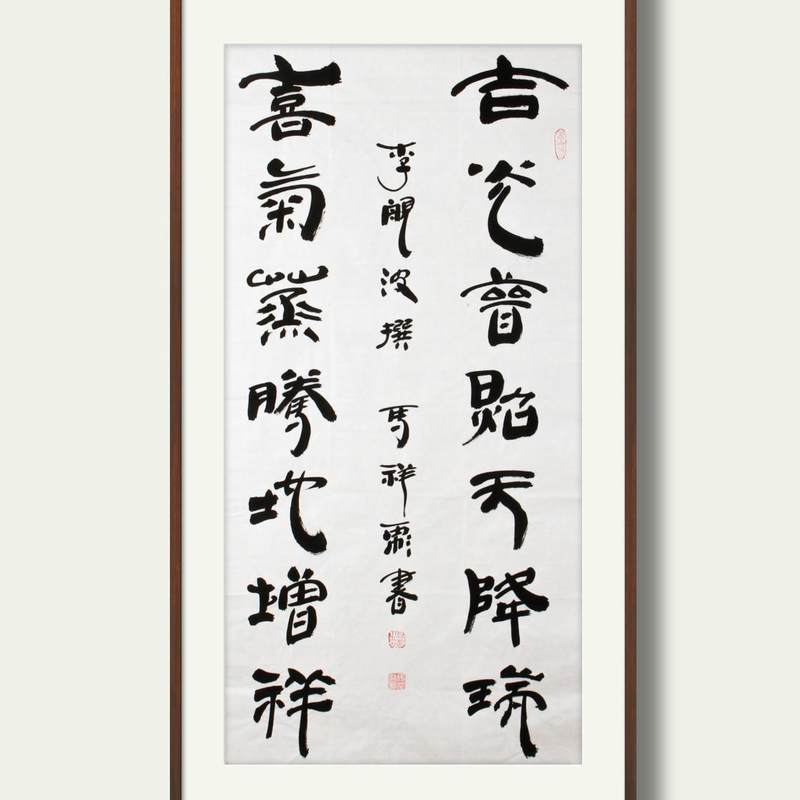 吉光普照天降瑞
喜氣蒸騰地增祥
李波撰 馬祥書